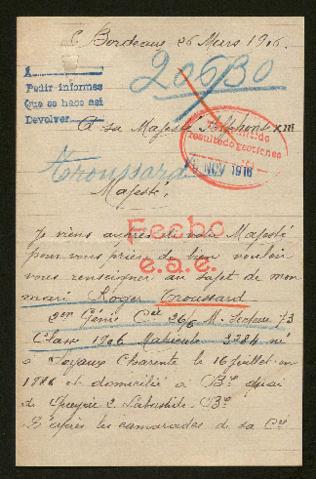 Bordeaux 26 Mars 1916.
20630
A
Pedir informes
Que se hace así
Devolver
A sa Majesté Alphonse XIII
resultado gestiones
NOV 1916
Troussard
Majesté,
Fecho
e.a.e.
Je viens auprès de votre Majesté
pour vous prier de bien vouloir
vous renseigner au sujet de mon
mari Roger Troussard
2em Génie Cie 26/6 M. Secteur 73
Classe 1906 Matricule 3234 né
à Soyaux Charente le 16 juillet en
1886 et domicilié à Bx quai
de 2. Labastide. Bx
D'après les camarades de sa Cie